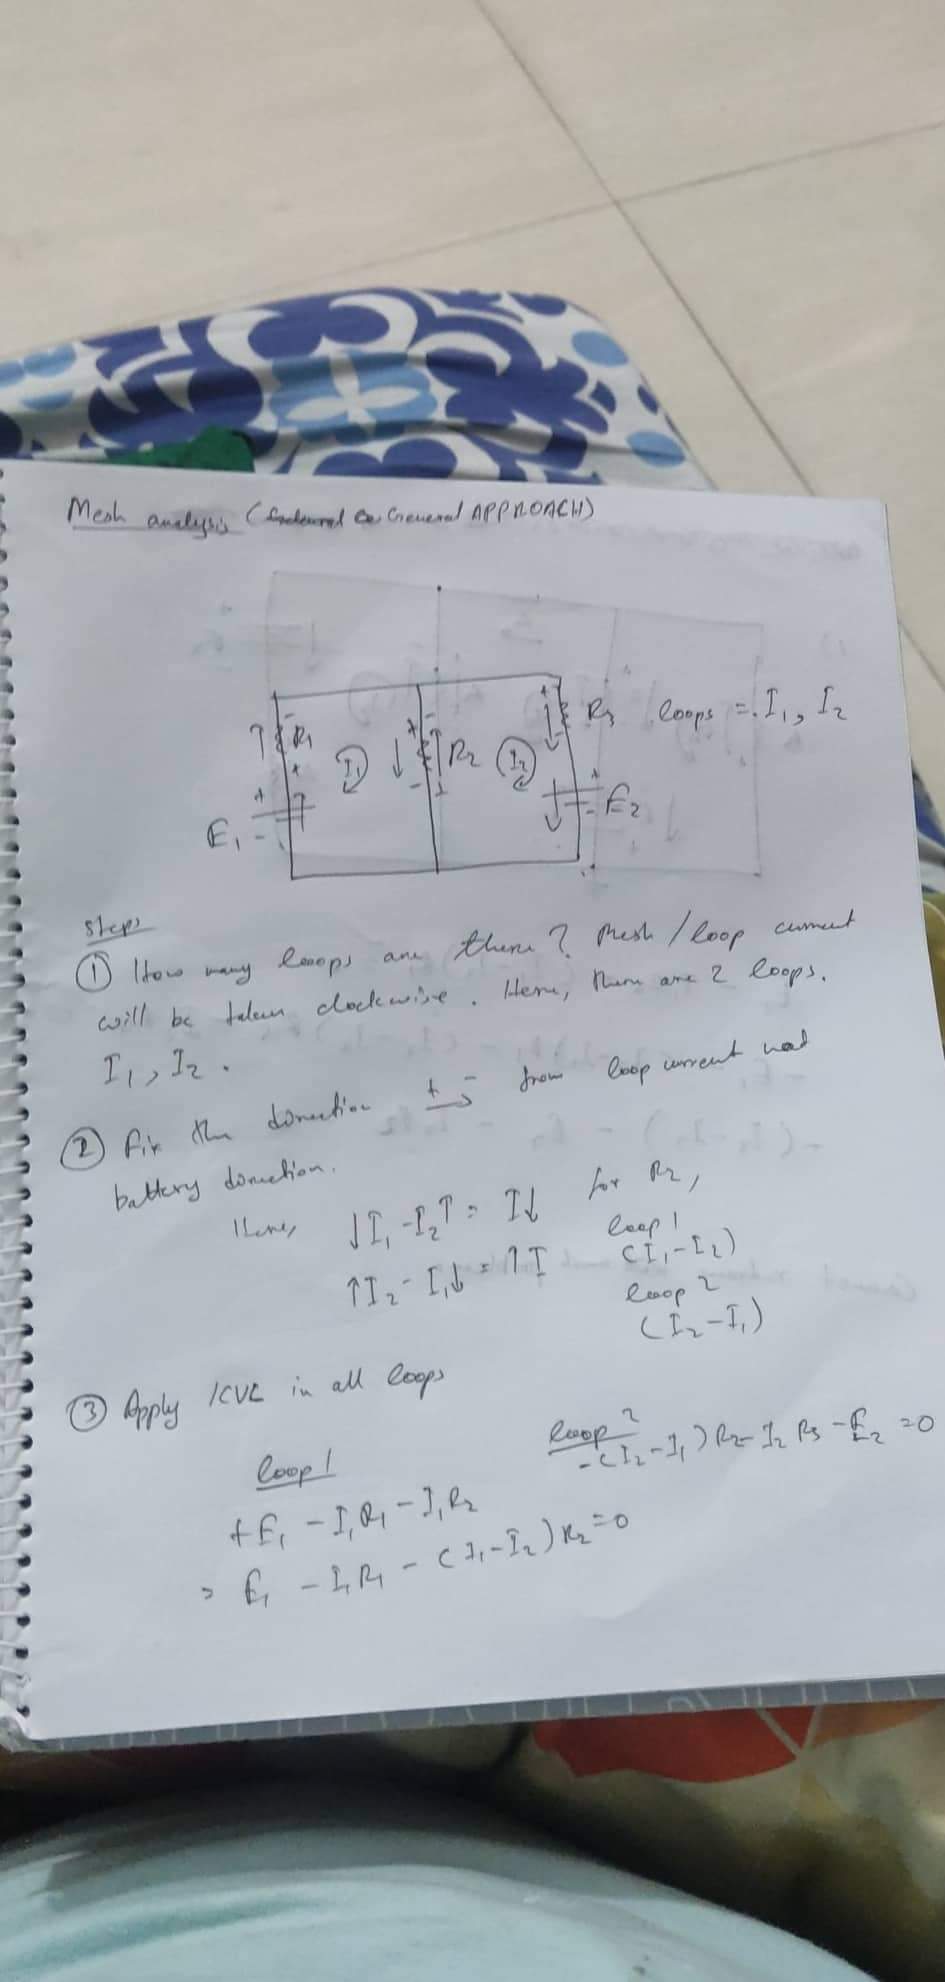 Mesh analysis ( General APPROACH)
R1 I1 R2 I2 R3 loops = I1, I2
E1 E2
Steps
① How many loops are there? Mesh / loop current
will be taken clockwise. Here, there are 2 loops.
I1, I2.
② Fix the direction + - from loop current
battery direction.
Here, ↓I1 - I2↑ = I↓ for R2,
loop 1
(I1 - I2)
↑I2 - I1↓ = ↑I
loop 2
(I2 - I1)
③ Apply KVL in all loops
loop 1
+E1 - I1R1 - I1R2
= E1 - I1R1 - (I1 - I2)R2 = 0
loop 2
-(I2 - I1)R2 - I2R3 - E2 = 0